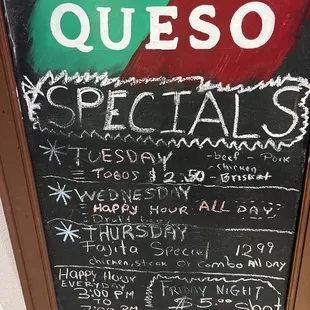 QUESO
SPECIALS
TUESDAY - beef - Pork
TOGOS $2.50 - chicken
- Brisket
WEDNESDAY
Happy Hour ALL DAY
Draft beer
THURSDAY
Fajita Special 12.99
chicken, steak or Combo All Day
Happy Hour
EVERYDAY
3:00 PM
7:00 PM
FRIDAY NIGHT
$5.00 Shot